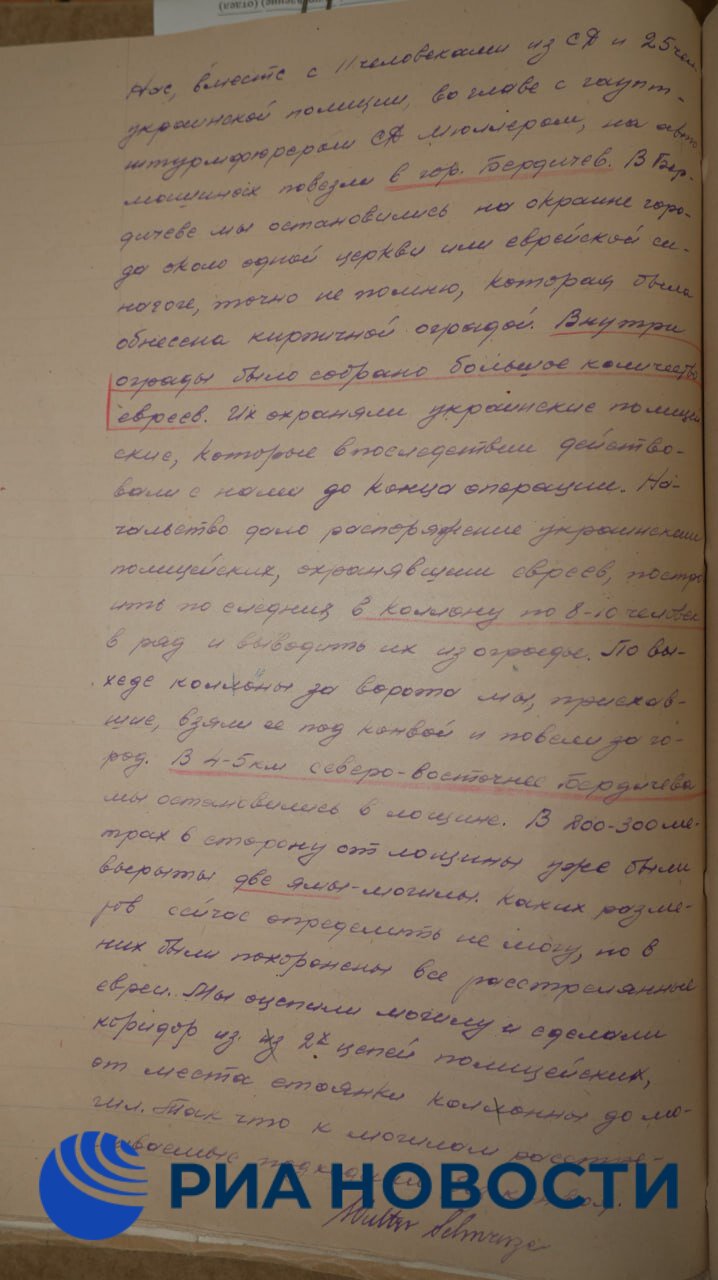 (отдел)
Нас, вместе с 11 человеками из СД и 25 чел.
украинской полиции, во главе с гаупт-
штурмфюрером СД Мюллером, на авто
машинах повезли в гор. Бердичев. В Бер-
дичеве мы остановились на окраине горо-
да около одной церкви или еврейской си-
нагоге, точно не помню, которая была
обнесена кирпичной оградой. Внутри
ограды было собрано большое количество
евреев. Их охраняли украинские полицей
ские, которые впоследствии действо-
вали с нами до конца операции. На-
чальство дало распоряжение украинским
полицейских, охранявшим евреев, постро
ить последних в коллону по 8-10 человек
в ряд и выводить их из ограды. По вы-
ходе коллоны за ворота мы, приехав-
шие, взяли ее под конвой и повели за го-
род. В 4-5 км северо-восточнее Бердичева
мы остановились в лощине. В 200-300 ме-
трах в сторону от лощины уже были
вырыты две ямы-могилы. Каких разме-
ров сейчас определить не могу, но в
них были похоронены все расстрелянные
евреи. Мы оцепили могилу и сделали
коридор из из 2х цепей полицейских,
от места стоянки колонны до мо-
гил. Так что к могилам расстре-
ливаемые под конвоя.
РИА НОВОСТИ
Walter